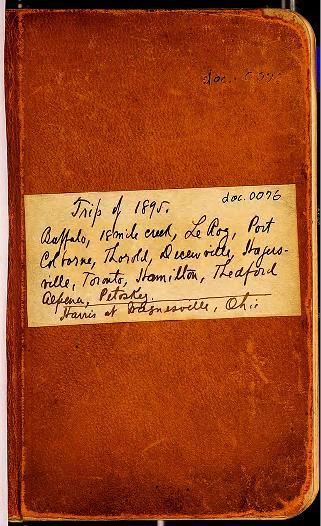 doc.
Trip of 1895. doc.0076
Buffalo, 18 mile creek, Le Roy, Port
Colborne, Thorold, Decewville, Hagers-
ville, Toronto, Hamilton, Thedford
Alpena, Petoskey.
Harris at Waynesville, Ohio